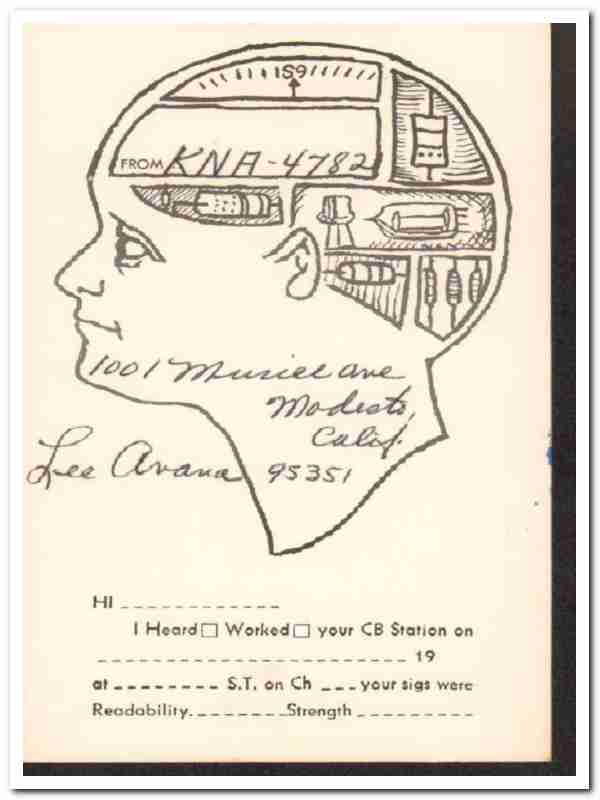 S9
FROM KNA-4782
1001 Muriel ave
Modesto,
Calif.
Lee Avana 95351
HI
I Heard □ Worked □ your CB Station on
19
at S.T. on Ch your sigs were
Readability. Strength